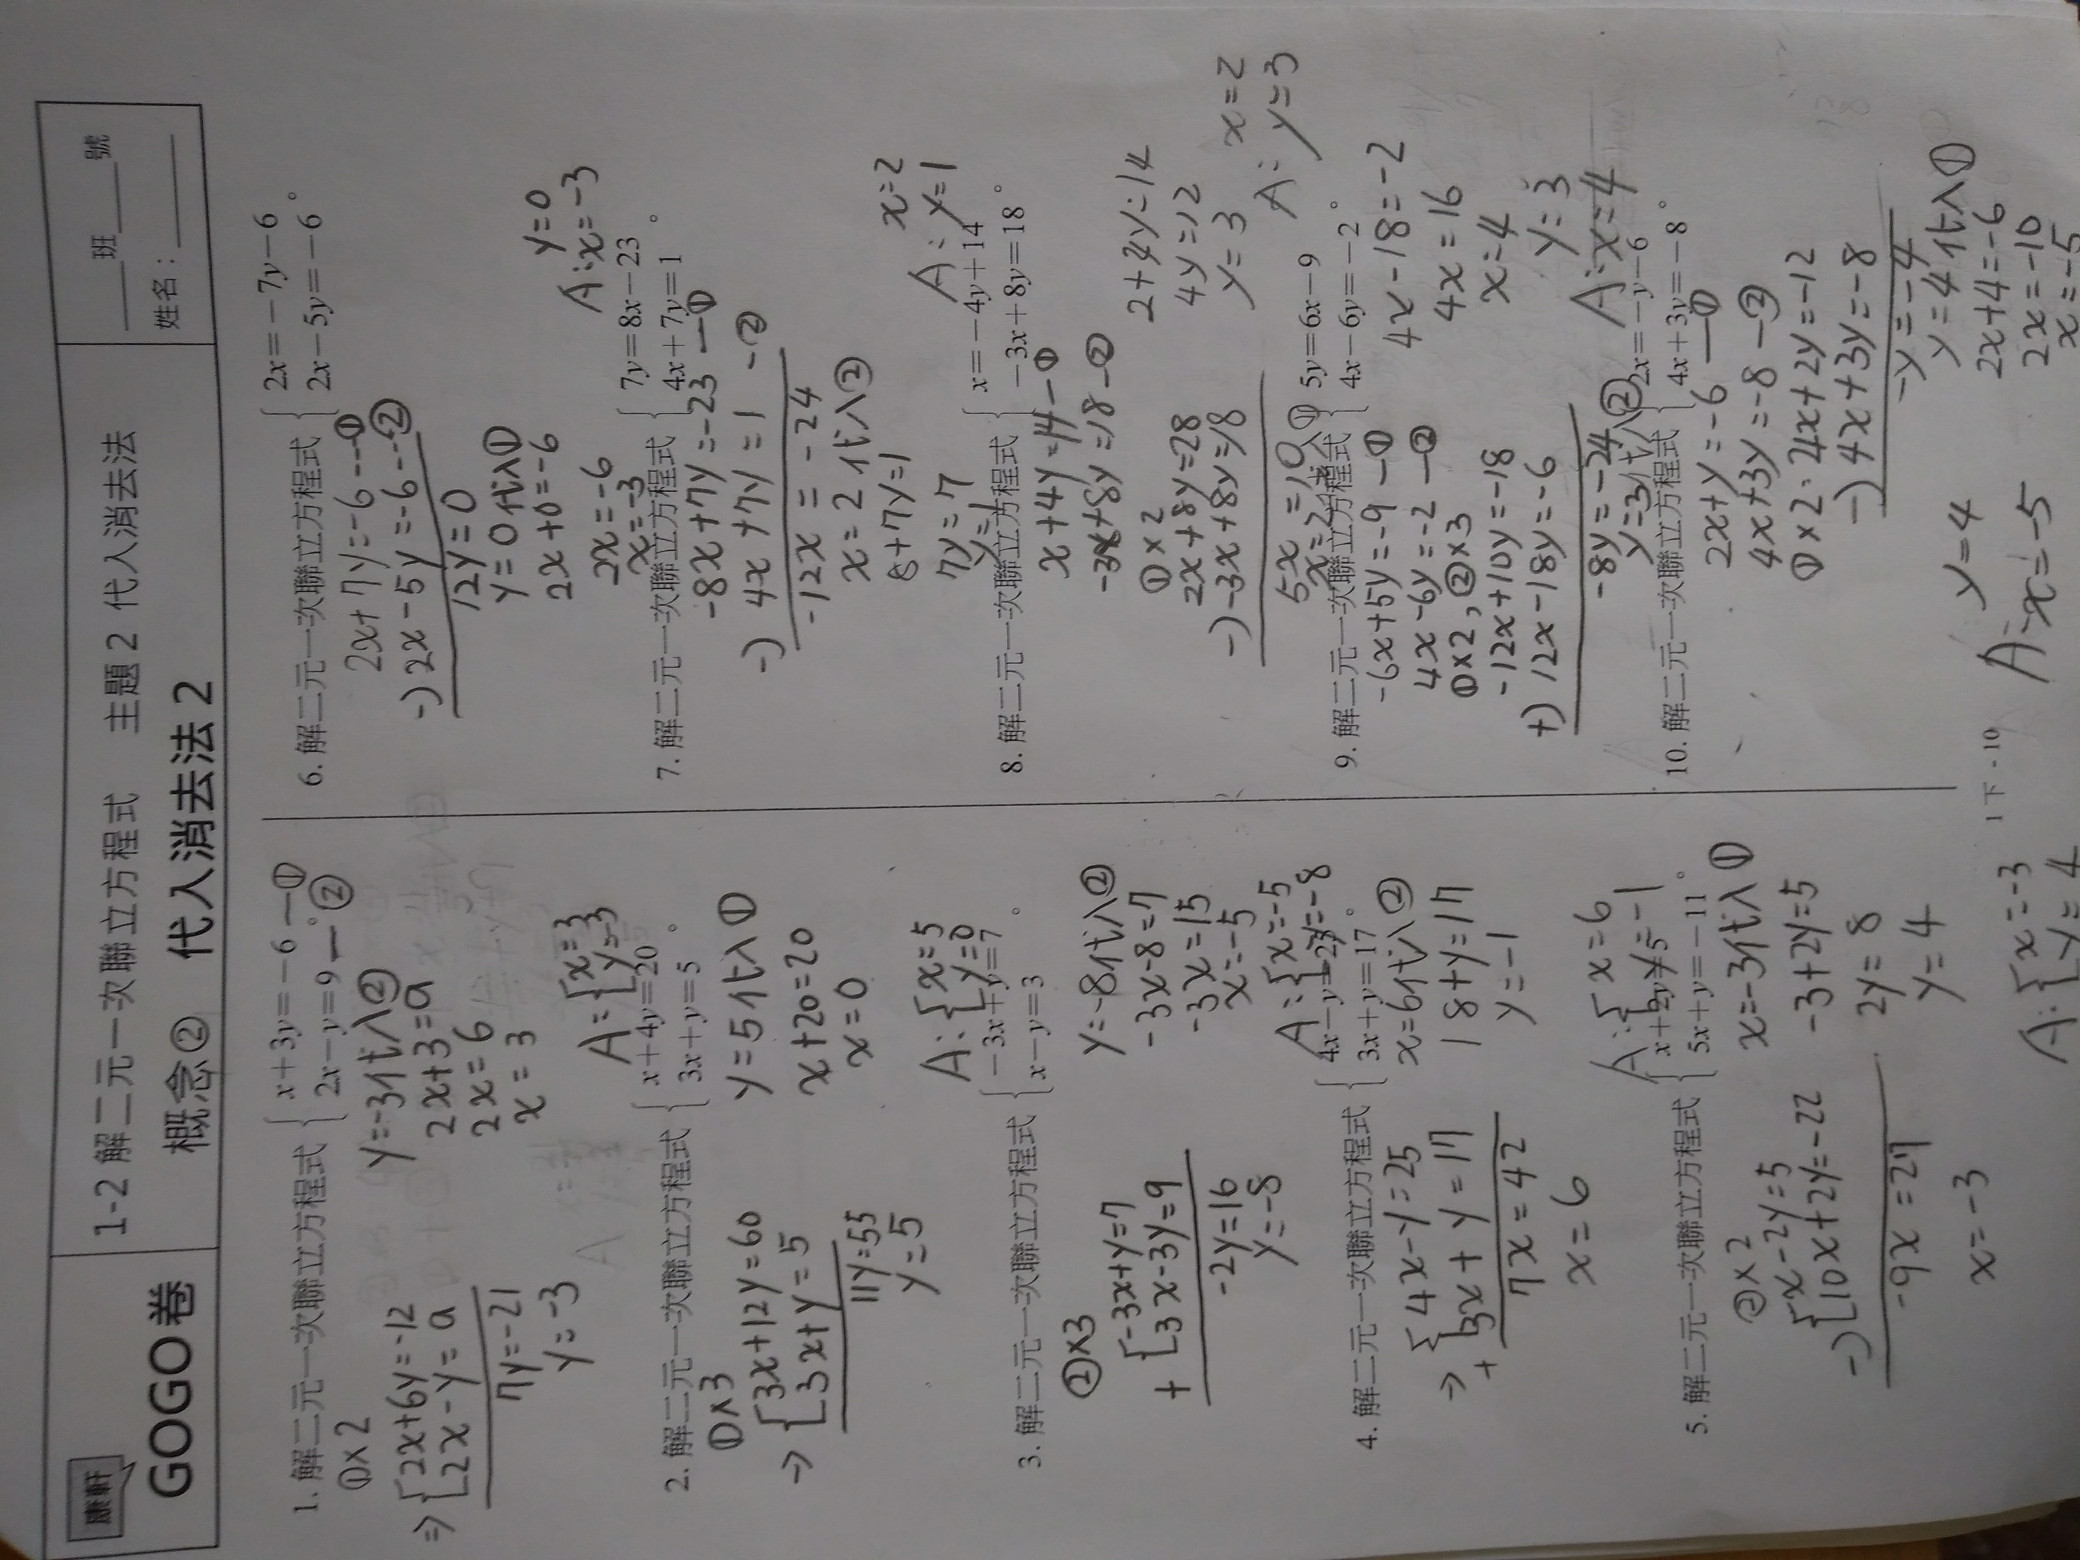 康軒
GOGO卷
1-2 解二元一次聯立方程式 主題2 代入消去法
概念② 代入消去法2
____班____號
姓名：________
1. 解二元一次聯立方程式 { x+3y=-6 —①
2x-y=9 。—②
①×2
⇒ { 2x+6y=-12
2x-y=9
7y=-21
y=-3
y=-3代入②
2x+3=9
2x=6
x=3
A: { x=3
y=-3
2. 解二元一次聯立方程式 { x+4y=20
3x+y=5 。
①×3
→ { 3x+12y=60
3x+y=5
11y=55
y=5
y=5代入①
x+20=20
x=0
A: { x=5
y=0
3. 解二元一次聯立方程式 { -3x+y=7
x-y=3 。
②×3
+ { -3x+y=7
3x-3y=9
-2y=16
y=-8
y=-8代入②
-3x-8=7
-3x=15
x=-5
A: { x=-5
y=-8
4. 解二元一次聯立方程式 { 4x-y=25
3x+y=17 。
→ { 4x-y=25
+ 3x+y=17
7x=42
x=6
x=6代入②
18+y=17
y=-1
A: { x=6
y=-1
5. 解二元一次聯立方程式 { x+2y=5
5x+y=-11 。
②×2
-) { x-2y=5
10x+2y=-22
-9x=27
x=-3
x=-3代入①
-3+2y=5
2y=8
y=4
A: { x=-3
y=4
6. 解二元一次聯立方程式 { 2x=-7y-6
2x-5y=-6 。
2x+7y=-6--①
-) 2x-5y=-6--②
12y=0
y=0代入①
2x+0=-6
2x=-6
x=-3
y=0
A: x=-3
7. 解二元一次聯立方程式 { 7y=8x-23
4x+7y=1 。
-8x+7y=-23 —①
-) 4x+7y=1 -②
-12x=-24
x=2代入②
8+7y=1
7y=7
y=1
x=2
A: y=1
8. 解二元一次聯立方程式 { x=-4y+14
-3x+8y=18 。
x+4y=14-①
-3x+8y=18-②
①×2
2x+8y=28
-) -3x+8y=18
5x=10
x=2代入①
2+4y=14
4y=12
y=3
x=2
A: y=3
9. 解二元一次聯立方程式 { 5y=6x-9
4x-6y=-2 。
-6x+5y=-9 —①
4x-6y=-2 —②
①×2,②×3
-12x+10y=-18
+) 12x-18y=-6
-8y=-24
y=3代入②
4x-18=-2
4x=16
x=4
y=3
A: x=4
10. 解二元一次聯立方程式 { 2x=-y-6
4x+3y=-8 。
2x+y=-6 —①
4x+3y=-8 —②
①×2. 4x+2y=-12
-) 4x+3y=-8
-y=-4
y=4代入①
2x+4=-6
2x=-10
x=-5
y=4
A: x=-5
1下-10